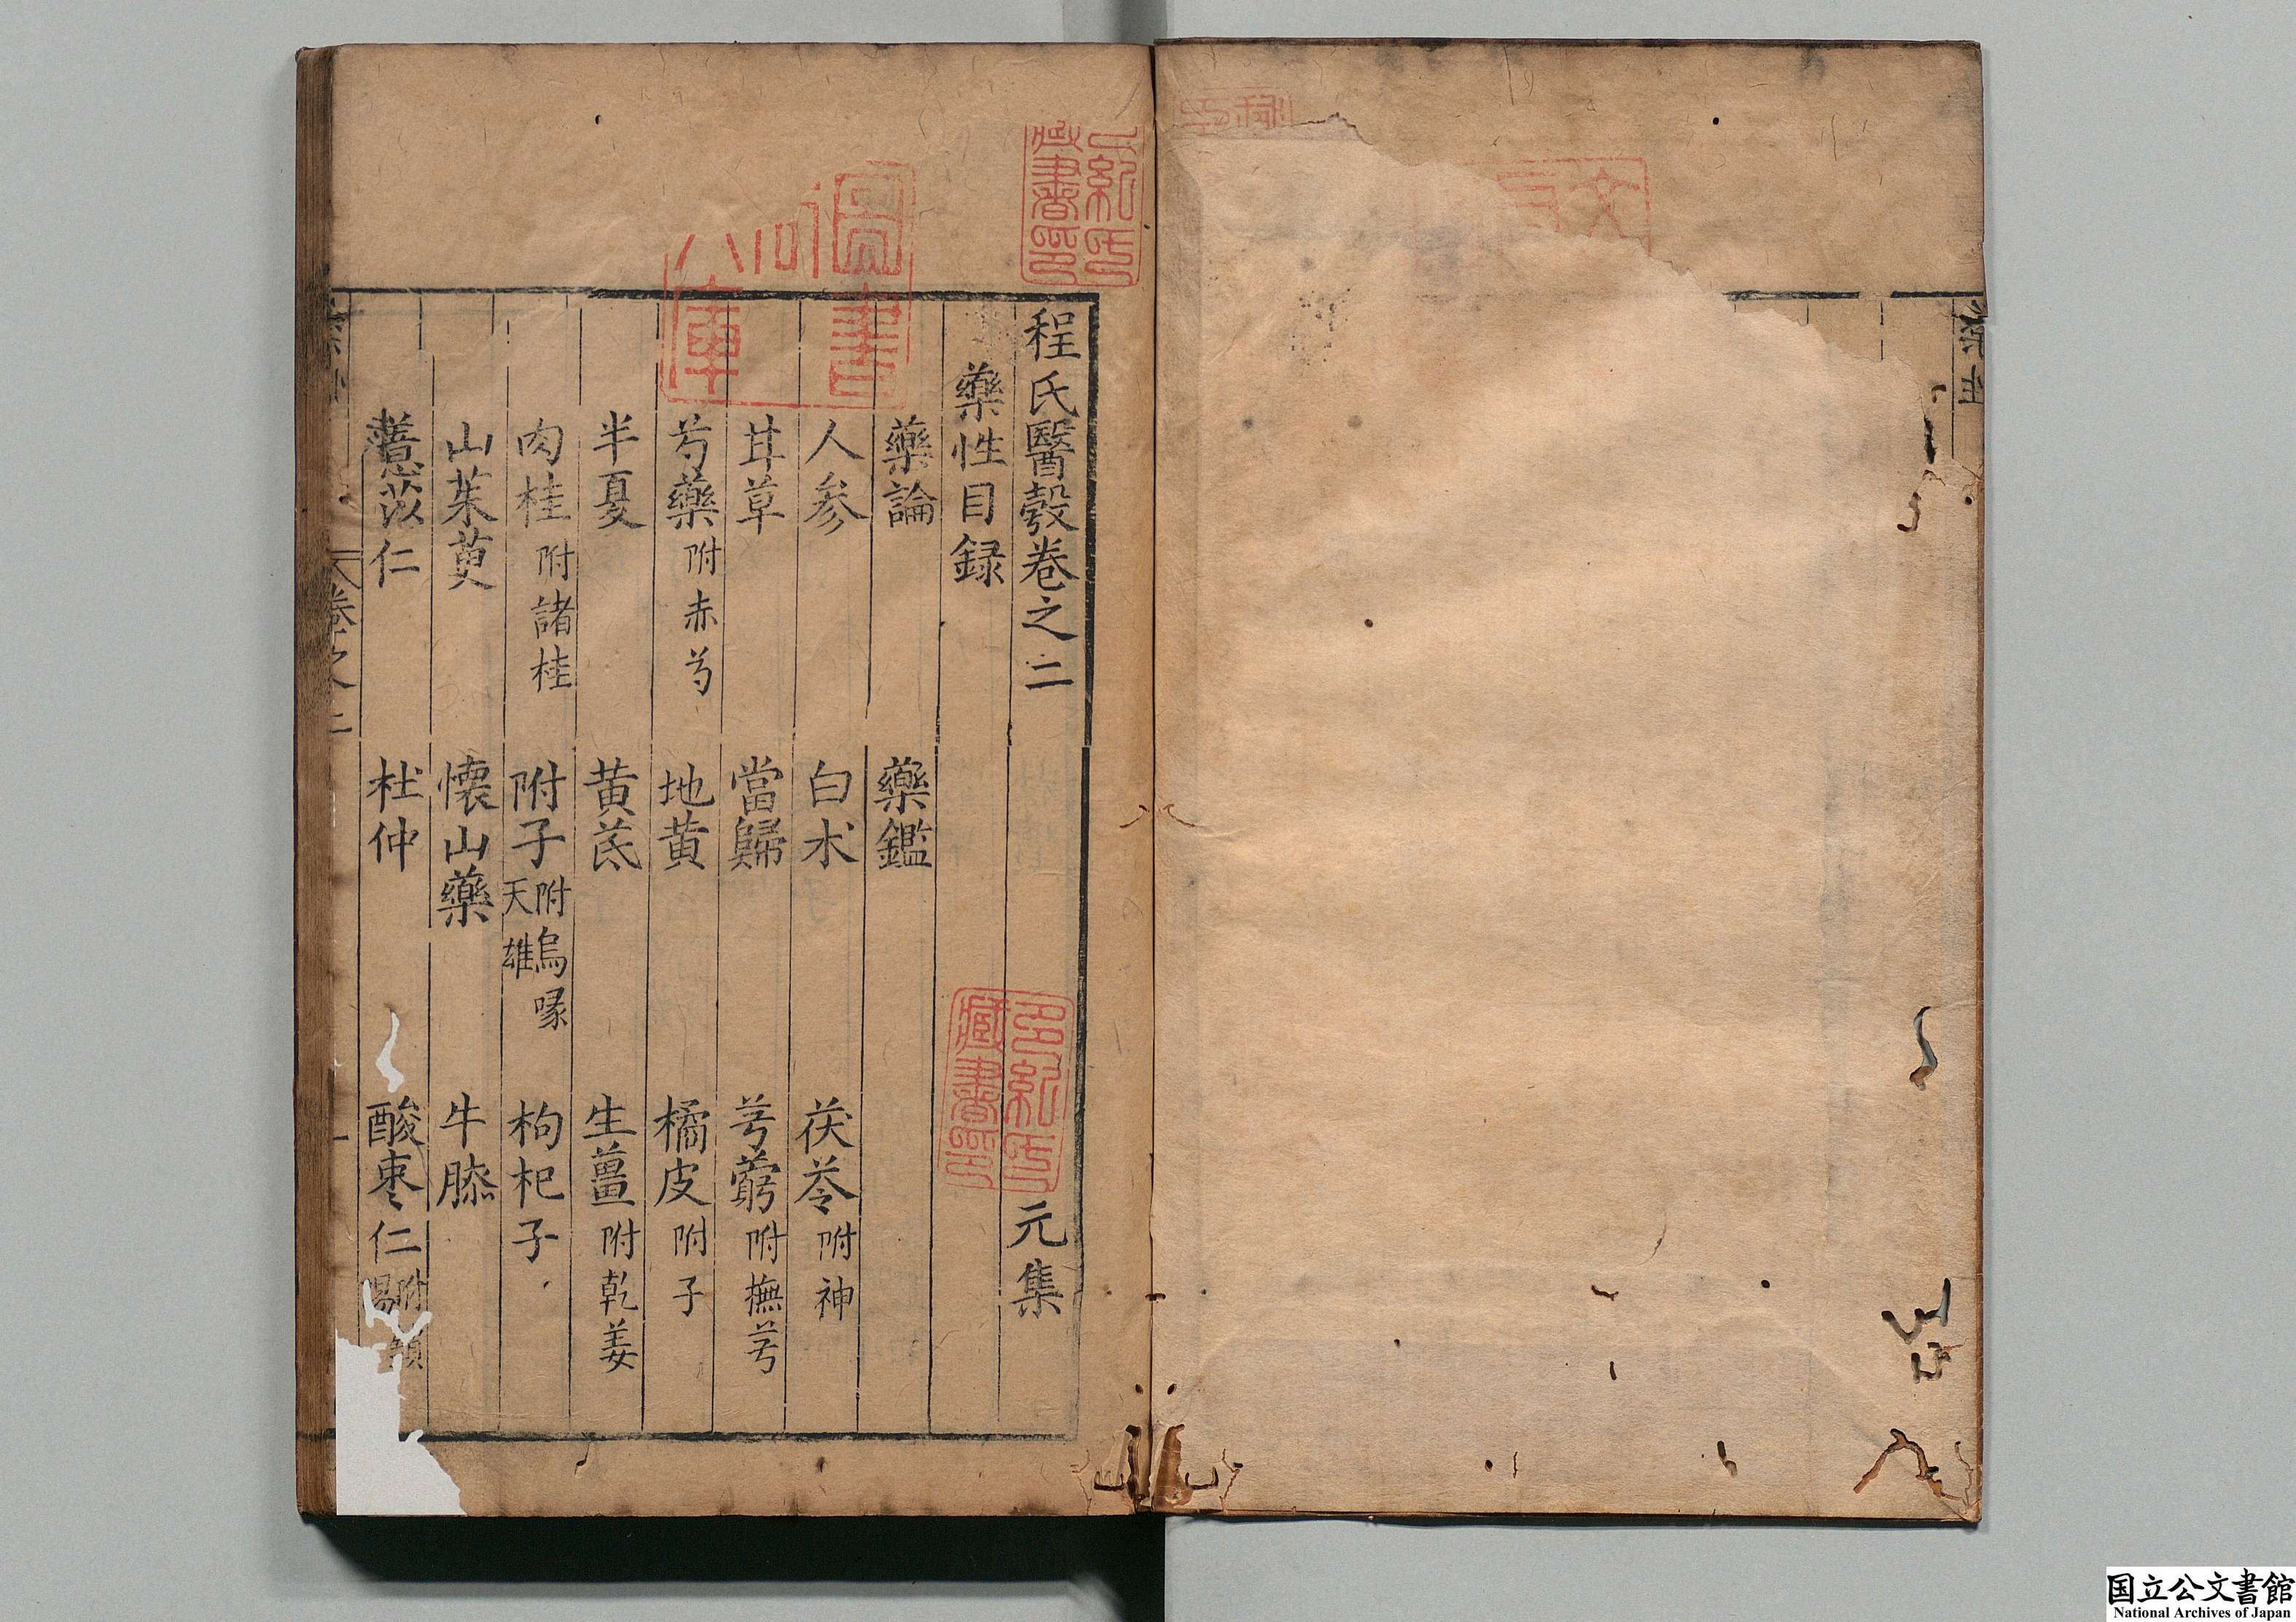 程氏醫彀卷之二 元集
藥性目録
藥論 藥鑑
人參 白术 茯苓附神
甘草 當歸 芎藭附撫芎
芍藥附赤芍 地黄 橘皮附子
半夏 黄芪 生薑附乾姜
肉桂附諸桂 附子附烏喙天雄 枸杞子
山茱萸 懐山藥 牛膝
薏苡仁 杜仲 酸枣仁附
卷之二
一
多紀氏藏書印
圖書
庫
国立公文書館
National Archives of Japan